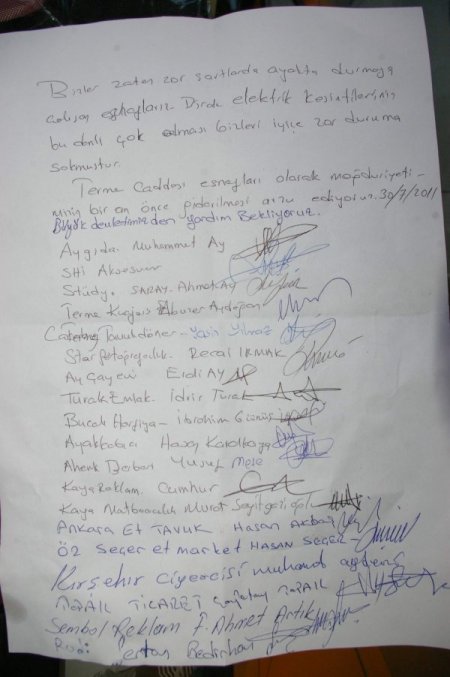 Bizler zaten zor şartlarda ayakta durmaya
çalışan esnaflarız. elektrik kesintilerinin
bu denli çok olması bizleri iyice zor duruma
sokmuştur.
Terme Caddesi esnafları olarak mağduriyeti-
mizin bir an önce giderilmesi arzu ediyoruz. 30/7/2011
Büyük devletimizden yardım Bekliyoruz.
Aygıda. Muhammet Ay
SHI Aksesuar
Stüdyo SARAY. Ahmet Ay
Terme Aydoğan
Tavukdöner - Yasin Yılmaz
Star fotoğrafçılık. Recai IRMAK
Ay Çayevi Erdi Ay
Turak Emlak. İdris Turak
Bucak - İbrahim
Ayakkabıcı Hasan
Ahenk Berber Yusuf Mese
Kaya Reklam. Cumhur
Kaya Matbaacılık Murat Seyitgazioğl
Ankara Et TAVUK Hasan Akbaş
ÖZ Seçer et market HASAN SEÇER
Kırşehir Ciğercisi
TİCARET
Sembol Reklam F. Ahmet Artık
Bedirhan